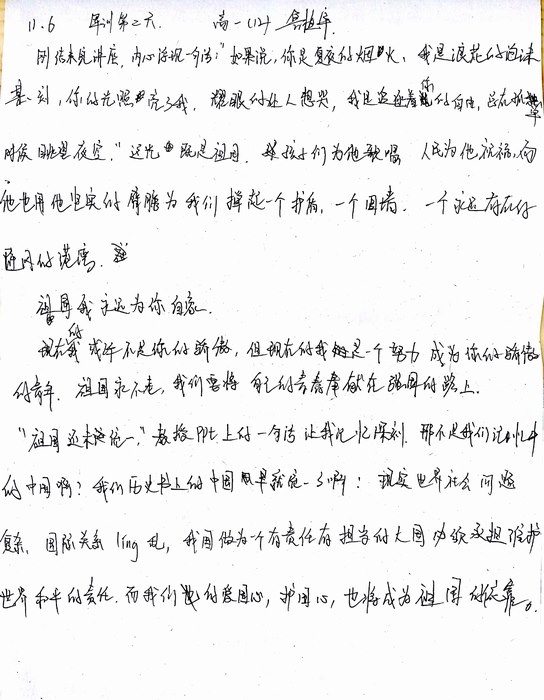 11.6 军训第二天. 高一(12)
刚结束完讲座, 内心浮现一句话:"如果说, 你是夏夜的烟火, 我是浪花的泡沫
某一刻, 你的光照亮了我. 耀眼的让人想哭, 我是追逐着你的自由, 总在孤单
时候眺望夜空." 这光既是祖国. 孩子们为他歌唱 人民为他祝福, 而
他也用他坚实的臂膀为我们撑起一个护盾, 一个围墙. 一个永远存在的
避风的港湾.
祖国我永远为你自豪.
现在的我或许不是你的骄傲, 但现在的我是一个努力成为你的骄傲
的青年. 祖国永不老, 我们要将自己的青春奉献在强国的路上.
"祖国还未统一." 教授PPt上的一句话让我记忆深刻. 那不是我们记忆中
的中国啊? 我们历史书上的中国早就统一了啊! 现实世界社会问题
复杂, 国际关系ling乱, 我国做为一个有责任有担当的大国必须承担维护
世界和平的责任. 而我们的爱国心, 护国心, 也将成为祖国的依靠。